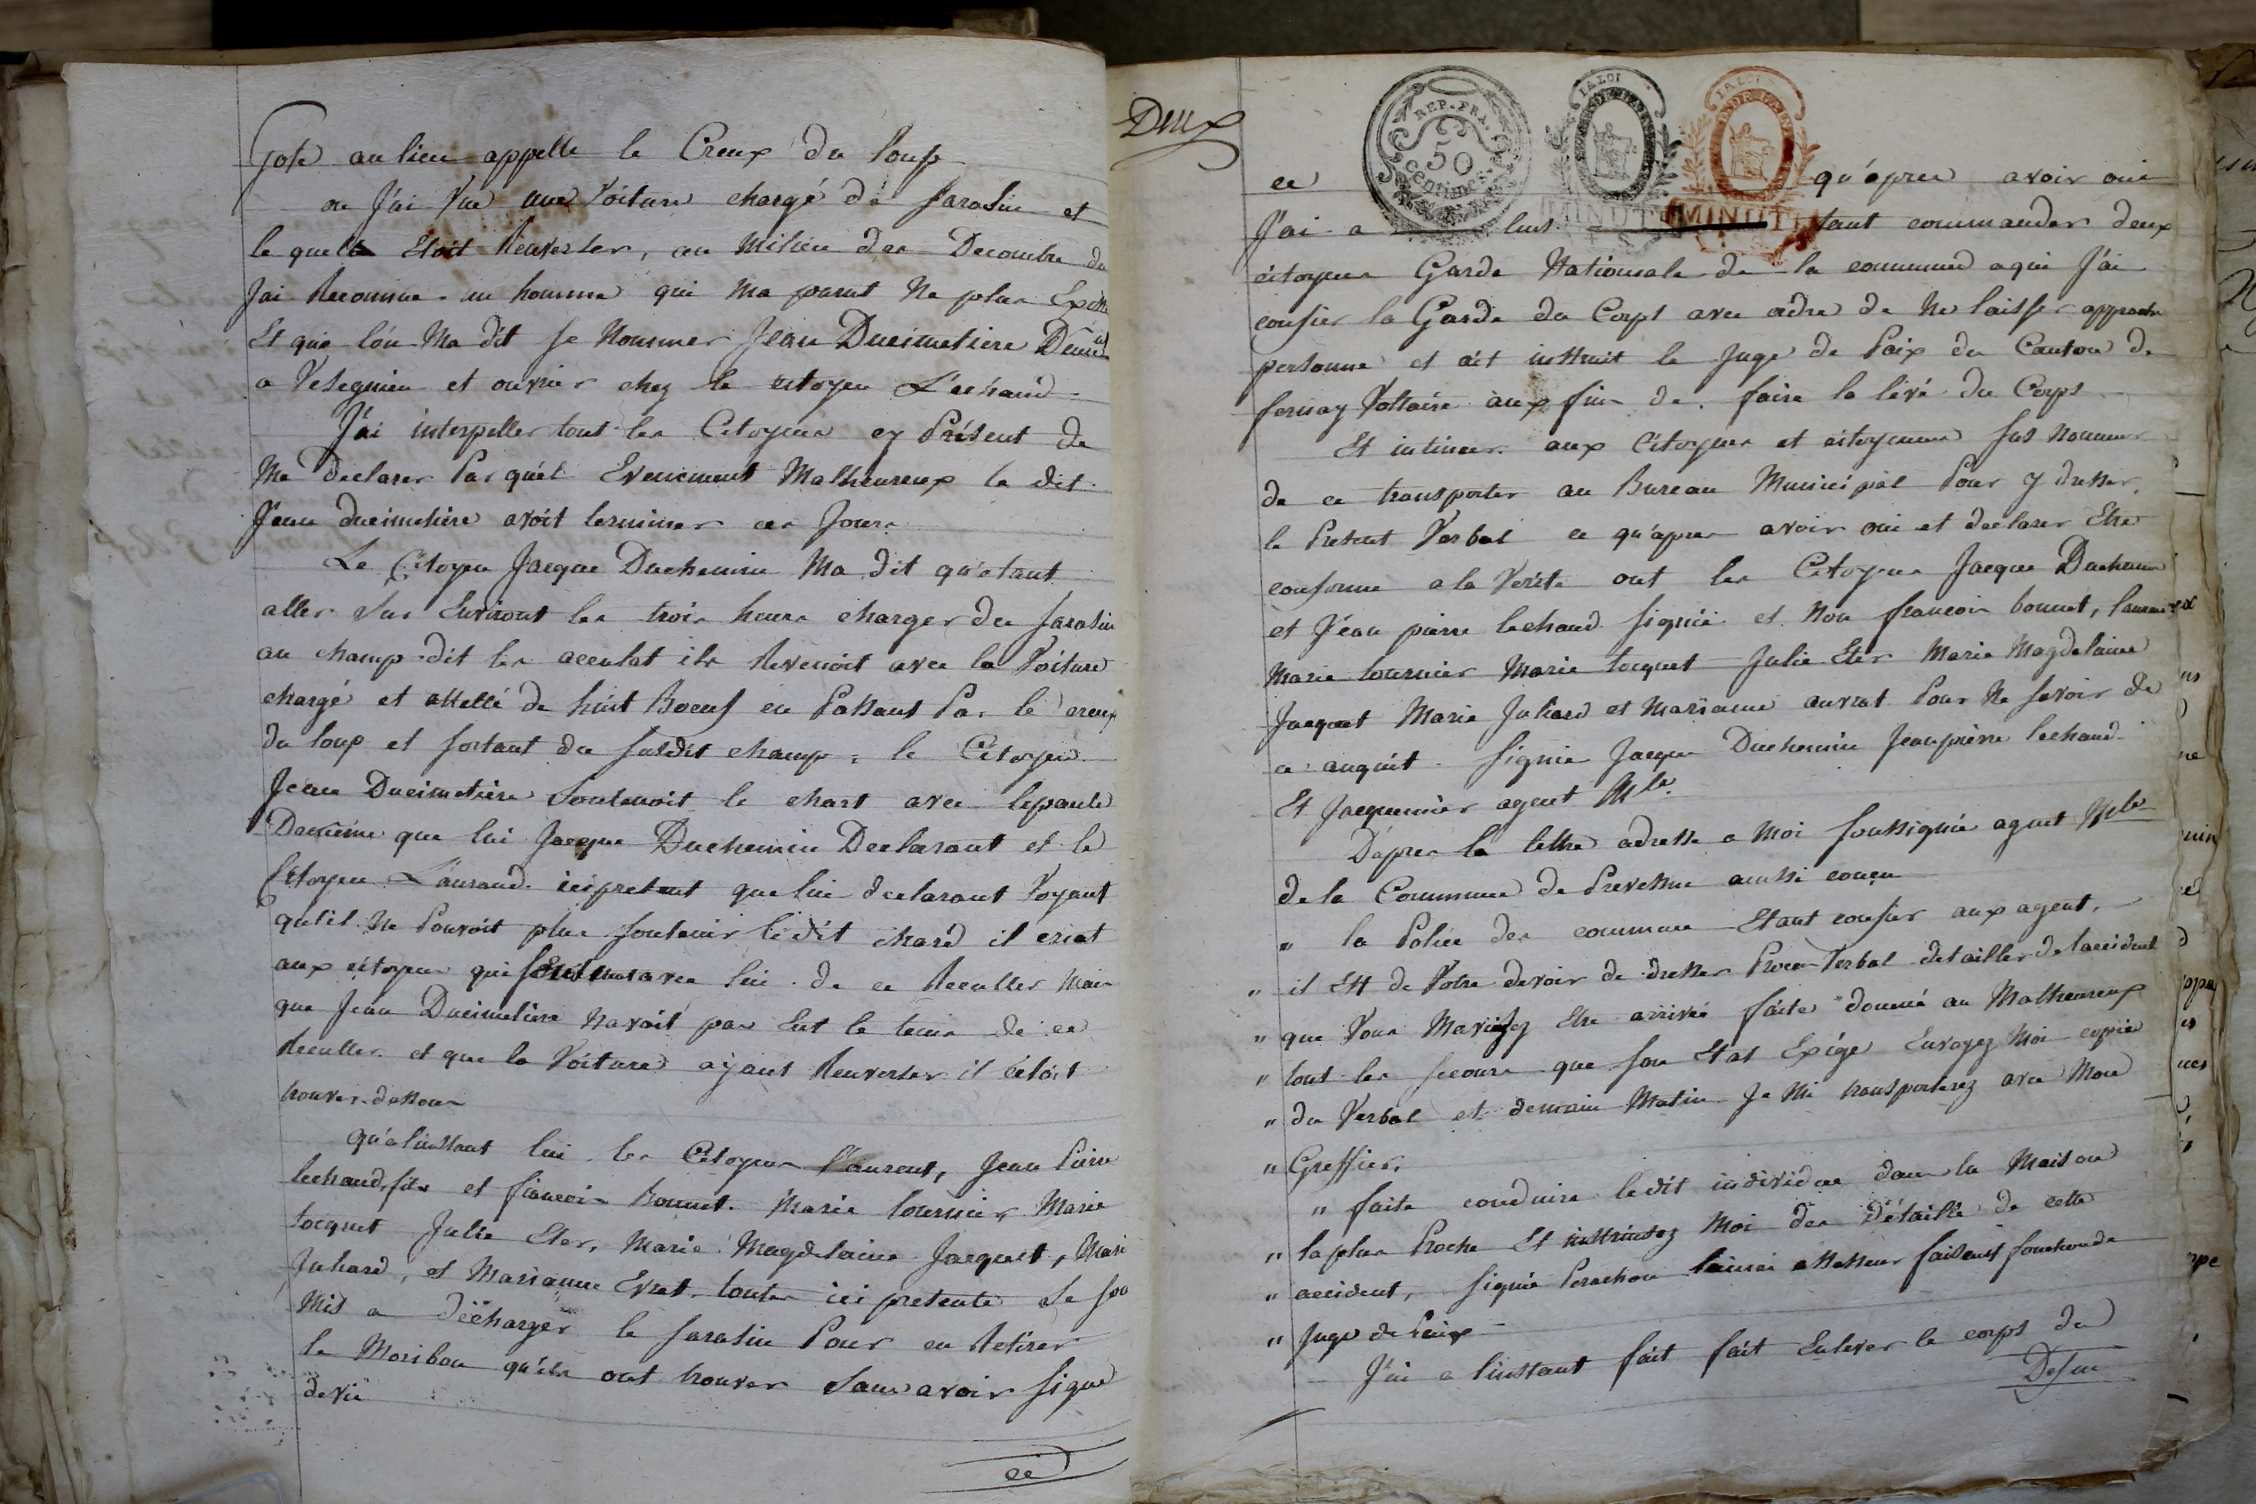 Gote au lieu appelle le Creux du loup
ou J'ai Vue une Voiture chargé de Sarasin et
le quelle Etoit Renverser, au Milieu des Decombre du
Jai Reconnue un homme qui ma parut Ne plus
Et que l'on Ma dit Se Nommer Jean Ducimetiere
a Vesegnieu et ouvrier chez le citoyen L'echaud
J'ai interpeller tout les Citoyens ey Présent de
Me declarer Par quél Evenement Malheureux le dit
Jean ducimetiere avoit terminer ces Jours
Le Citoyen Jacque Duchemin Ma dit qu'etant
aller Sur Environt les trois heures charger du Sarasin
au champ dit les ils Revenoit avec la Voiture
chargé et attellé de huit Boeuf en Passant Par le creux
du loup et sortant du Susdit champ, le Citoyen
Jean Ducimetiere Soutenoit le chart avec lepaule
De même que lui Jacque Duchemin Declarant et le
Citoyen L'aurand ici present que lui declarant Voyant
qu'il Ne Pouvoit plus Soutenir ledit chard il criat
aux citoyens qui avec lui de ce Reculler Mais
que Jean Ducimetiere Navoit pas Eut le tems de ce
Reculler et que la Voiture ayant Renverser il c'etoit
trouver dessous
qu'a linstant lui les Citoyens Laurent, Jean Pierre
lechaud fils et francois Bonnet. Marie tournier, Marie
tocquet Julie Eter, Marie Magdelaine Jacquet, Mari
Juhard, et Marianne Evrat, toutes ici presente Se Son
Mit a décharger le Sarasin Pour en Retirer
le Moribon qu'ils ont trouver Sans avoir Signe
devie
ce
Deux
REP. FRA.
50
centimes
LA LOI
MINUTE
LA LOI
MINUTE
ce qu'après avoir oui
J'ai a lins tant commander deux
citoyens Garde Nationale de la commune a qui J'ai
confier la Garde du Corps avec odre de Ne laisser approcher
personne et ait instruit le Juge de Paix du Canton de
fernay Voltaire aux fins de faire la levé du Corps
Et intimer aux Citoyens et citoyennes Sus Nommer
de ce transporter au Bureau Municipal Pour y dresser
le Present Verbal ce qu'apres avoir oui et declarer Etre
conforme a la Verité ont les Citoyens Jacque Duchemin
et Jean pierre lechaud Signié et Non francois bonnet,
Marie tournier Marie tocquet Julie Eter Marie Magdelaine
Jacquet Marie Juhard et Marianne auvrat Pour Ne Savoir de
ce anquit Signié Jacque Duchemin Jeanpierre lechaud
Et Jacquemier agent Mle.
D'apres la lettre adresse a Moi Soussignié agent Mle
de la Commune de Prevessin aussi conçu
" la Police des commune Etant confier aux agent,
" il Est de Votre devoir de dresser Proces Verbal detailler de laccident
" que Vous Etre arrivé faite donné au Malheureux
" tout les Secours que Son Etat Exige Envoyez Moi copie
" du Verbal et demain Matin Je Mi transporterez avec Mon
" Greffier,
" faite conduire ledit individue dans la Maison
" la plus Proche Et instruisez Moi des Détaille de cette
" accident, Signié Perachon assesseur faisant fonction de
" Juge de Paix
J'ai a linstant fait fait Enlever le corps du